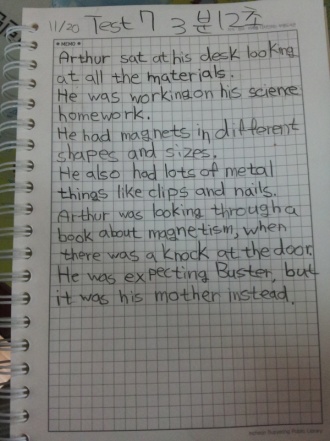 11/20 Test 7 3분12초
MEMO
Arthur sat at his desk looking
at all the materials.
He was working on his science
homework.
He had magnets in different
shapes and sizes.
He also had lots of metal
things like clips and nails.
Arthur was looking through a
book about magnetism, when
there was a knock at the door.
He was expecting Buster, but
it was his mother instead.